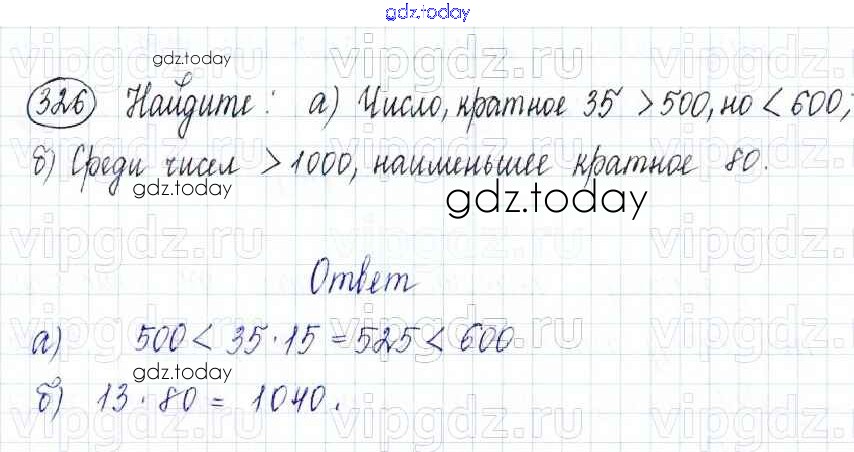 gdz.today
gdz.today
326 Найдите: а) Число, кратное 35 > 500, но < 600;
б) Среди чисел > 1000, наименьшее кратное 80.
gdz.today
gdz.today
Ответ
а) 500 < 35 · 15 = 525 < 600
gdz.today
б) 13 · 80 = 1040.
vipgdz.ru